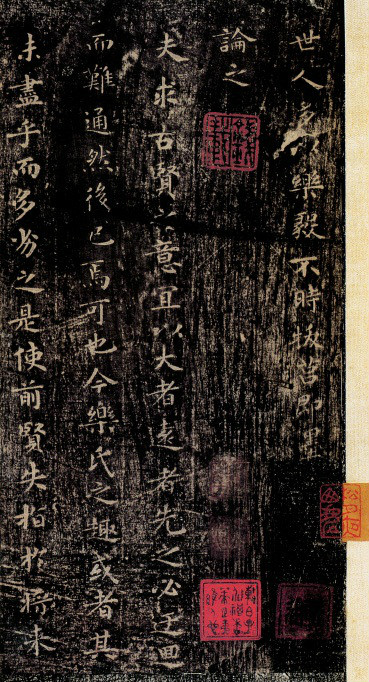 世人多以樂毅不時拔莒即墨
論之
夫求古賢之意宜以大者遠者先之必迂迴
而難通然後已焉可也今樂氏之趣或者其
未盡乎而多劣之是使前賢失指於將來